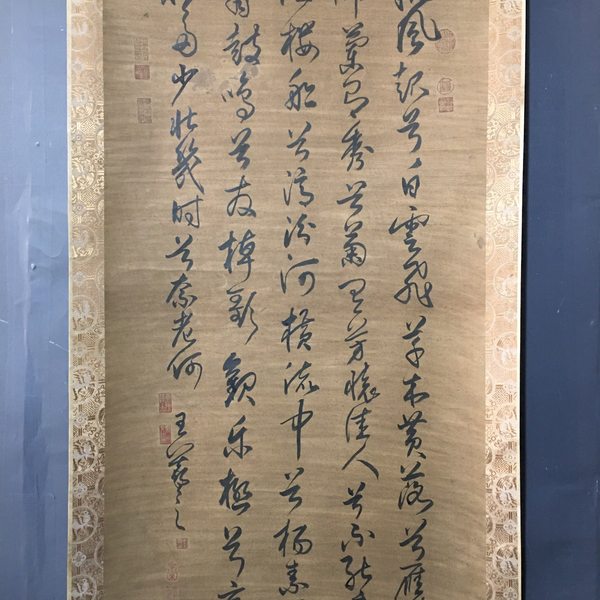 風起兮白雲飛草木黄落兮雁
歸蘭有秀兮菊有芳懷佳人兮不能
樓船兮濟汾河橫流中兮楊素
鼓鳴兮發棹歌歡樂極兮哀
多少壯幾時兮奈老何
王羲之